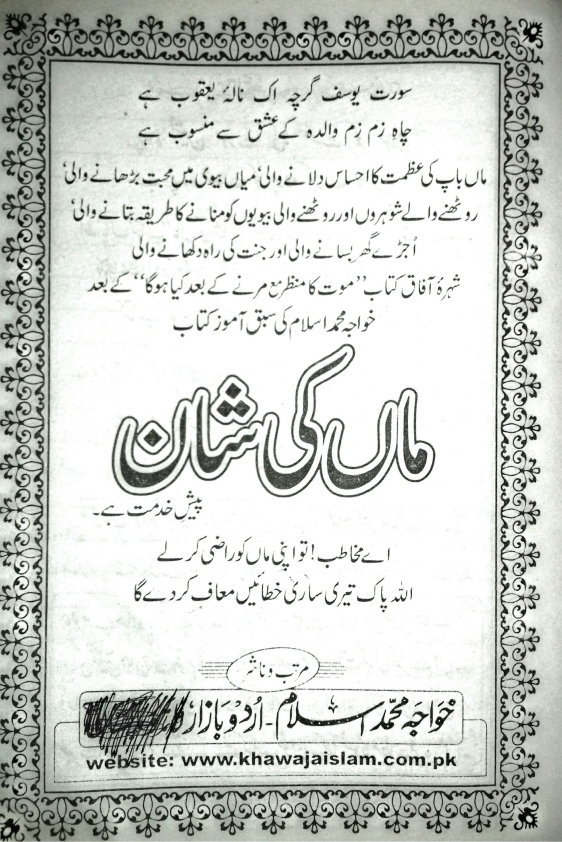 سورت یوسف گرچہ اک نالۂ یعقوب ہے
چاہِ زم زم والدہ کے عشق سے منسوب ہے
ماں باپ کی عظمت کا احساس دلانے والی‘ میاں بیوی میں محبت بڑھانے والی‘
روٹھنے والے شوہروں اور روٹھنے والی بیویوں کو منانے کا طریقہ بتانے والی‘
اُجڑے گھر بسانے والی اور جنت کی راہ دکھانے والی
شہرۂ آفاق کتاب ”موت کا منظر مع مرنے کے بعد کیا ہوگا“ کے بعد
خواجہ محمد اسلام کی سبق آموز کتاب
ماں کی شان
پیش خدمت ہے۔
اے مخاطب! تو اپنی ماں کو راضی کر لے
اللہ پاک تیری ساری خطائیں معاف کر دے گا
مرتب و ناشر
خواجہ محمد اسلام - اردو بازار
website: www.khawajaislam.com.pk